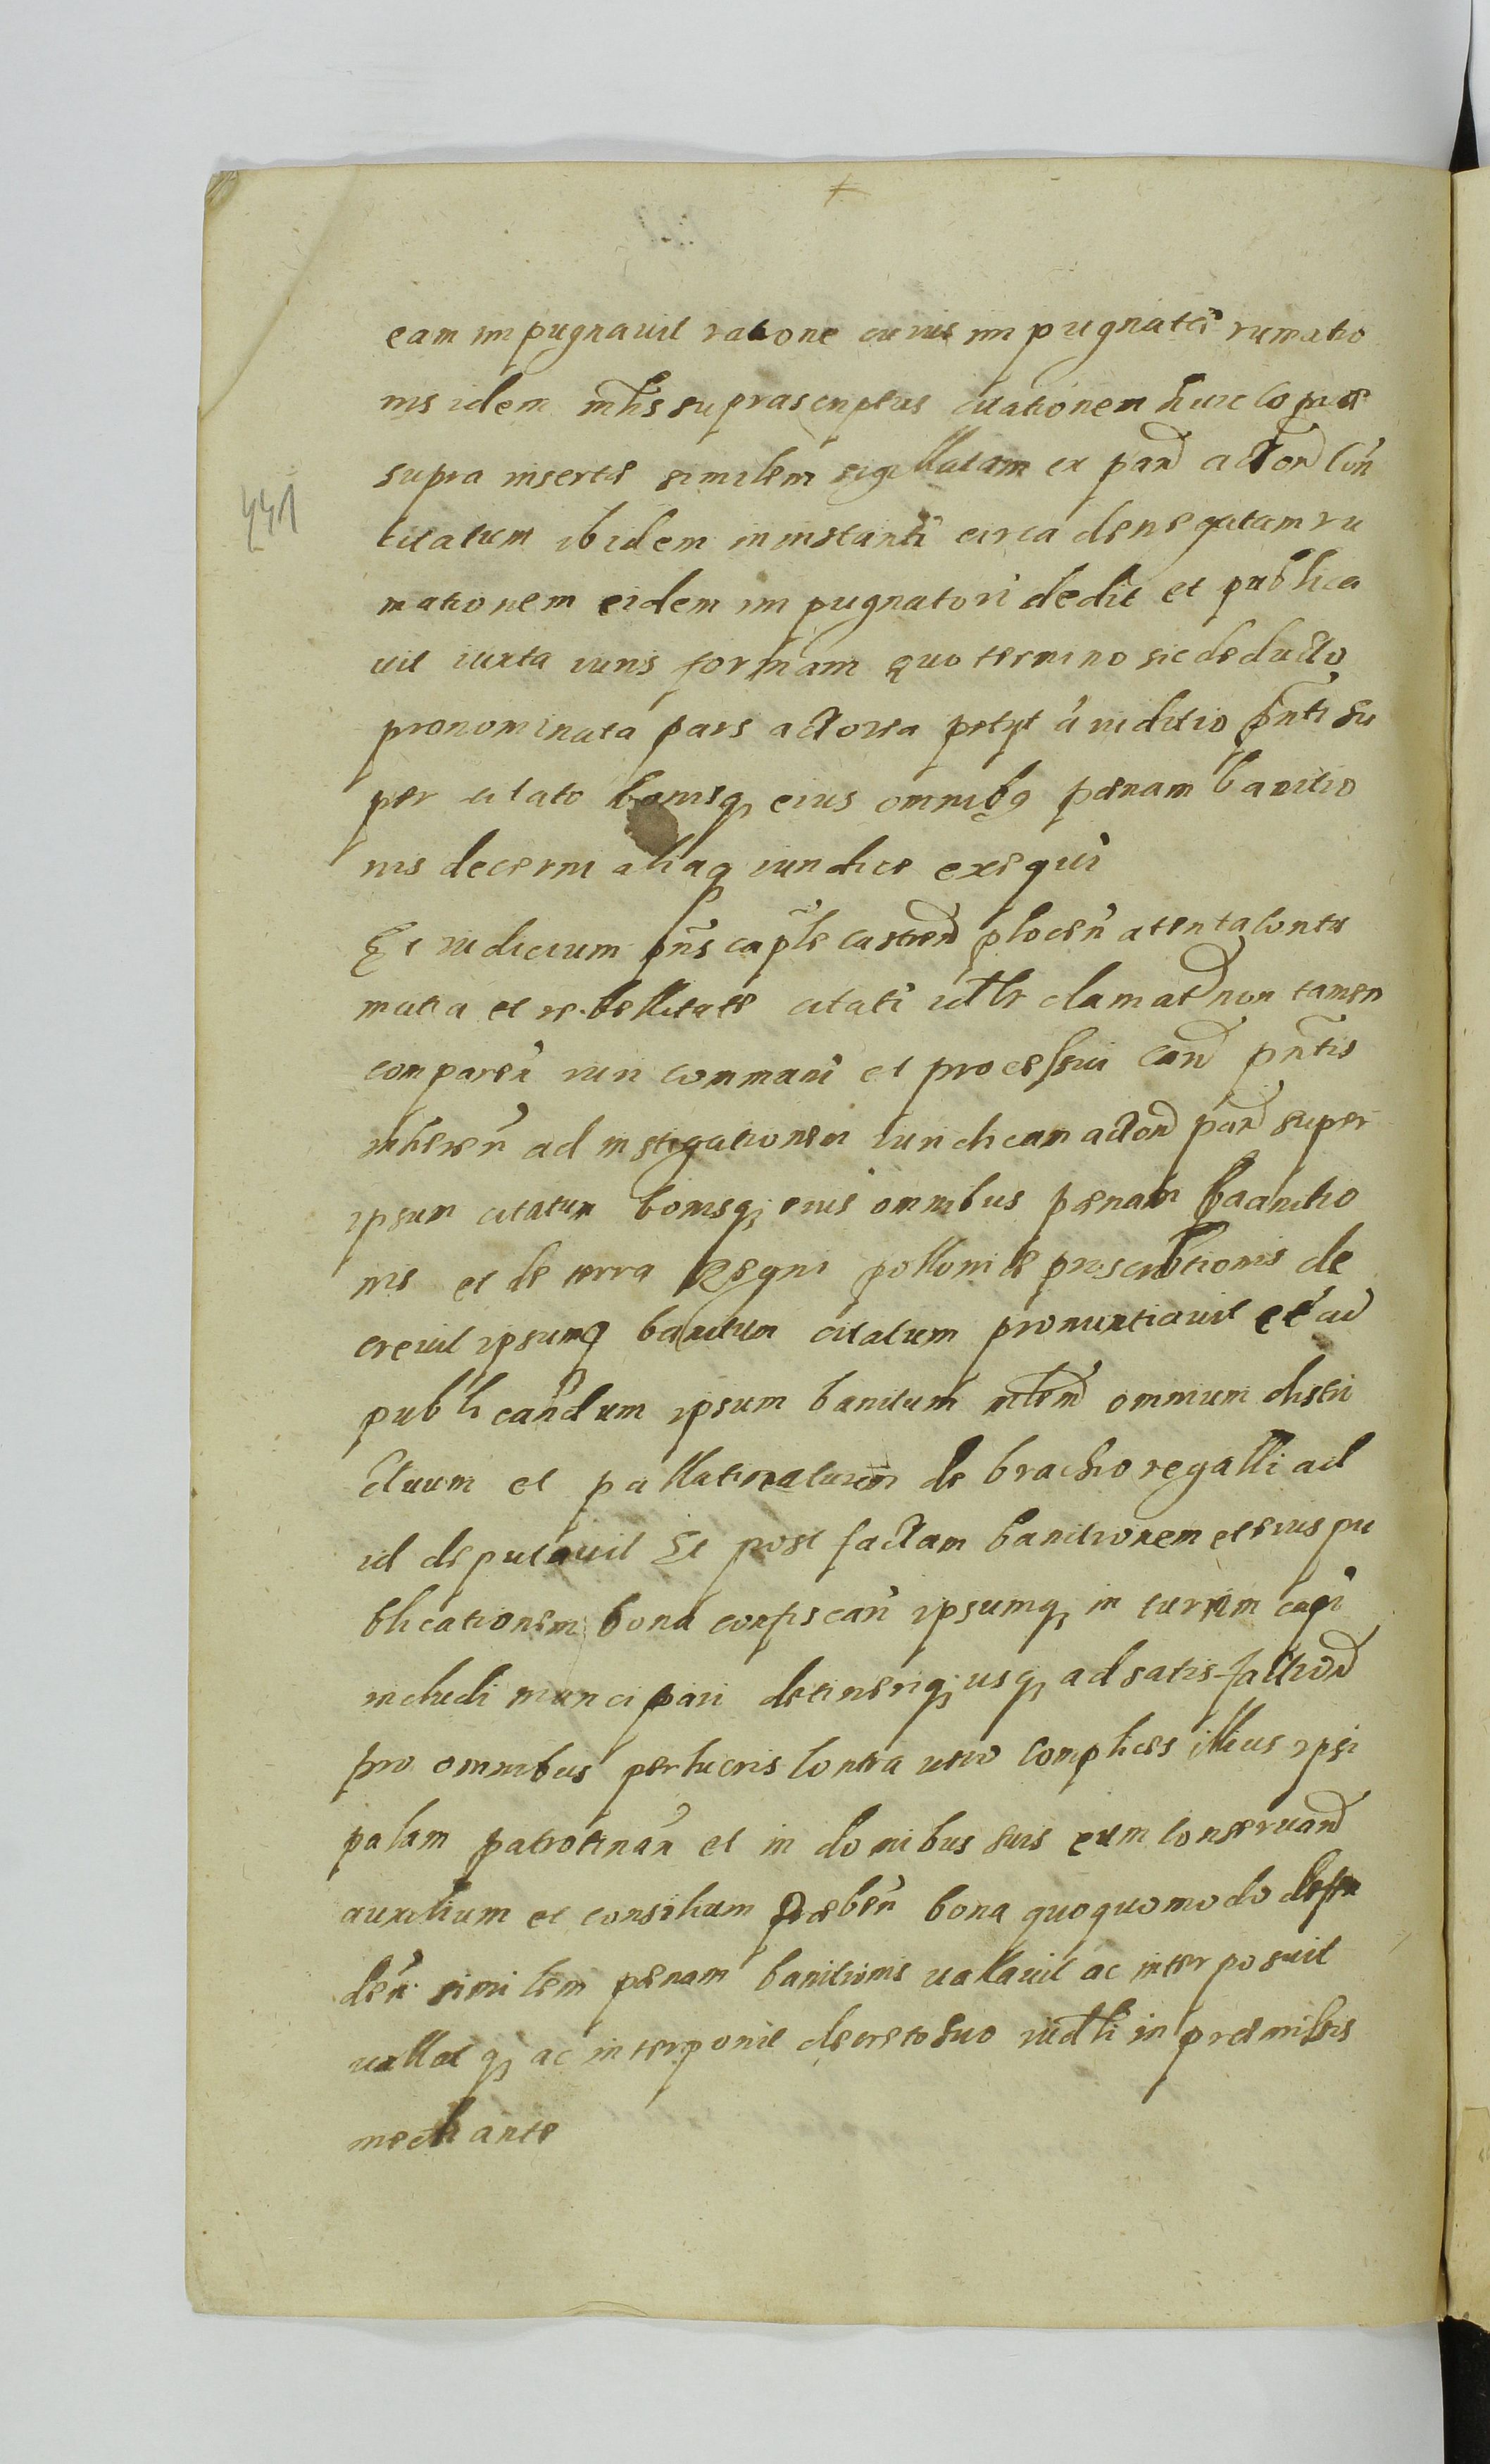 eam impugnavit ratione cuius impugnatae rumatio
nis idem mths suprascriptus citationem huic copiae
supra insertae similem sigillatam ex par actor con
citatum ibidem in instanti circa denegatam ru
mationem eidem impugnatori dedit et publica
vit iuxta iuris formam quo termino sic deducto
pronominata pars actorea petyt a iuditio pnti su
per citato bonisq eius omnibq paenam banitio
nis decerni aliaq iuridice exequi
Et iudicium pns caple castren plocen atenta contu
matia et rebellitate citati idtr clamat non tamen
comparen iuri communi et processui can pntis
inheren ad instigationem iuridicam actor par super
ipsum citatum bonisq eius omnibus paenam baanitio
nis et de terra Regni polloniae proscribtionis de
crevit ipsumq banitum citatum pronuntiavit et ad
publicandum ipsum banitum mlem omnium distri
ctuum et pallatinatuum de brachio regalli ad
id deputavit Et post factam banitionem et eius pu
blicationem bona confiscari ipsumq in turrim capi
includi mancipari detineriq usq ad satisfaction
pro omnibus perlucris contra vero complices illius ipsi
palam patrotinan et in domibus suis eum conservan
auxilium et consilium praeben bona quoquomodo defen
den similem paenam banitionis vallavit ac interposuit
vallat q ac interponit decreto suo iudtli in praemissis
mediante
441